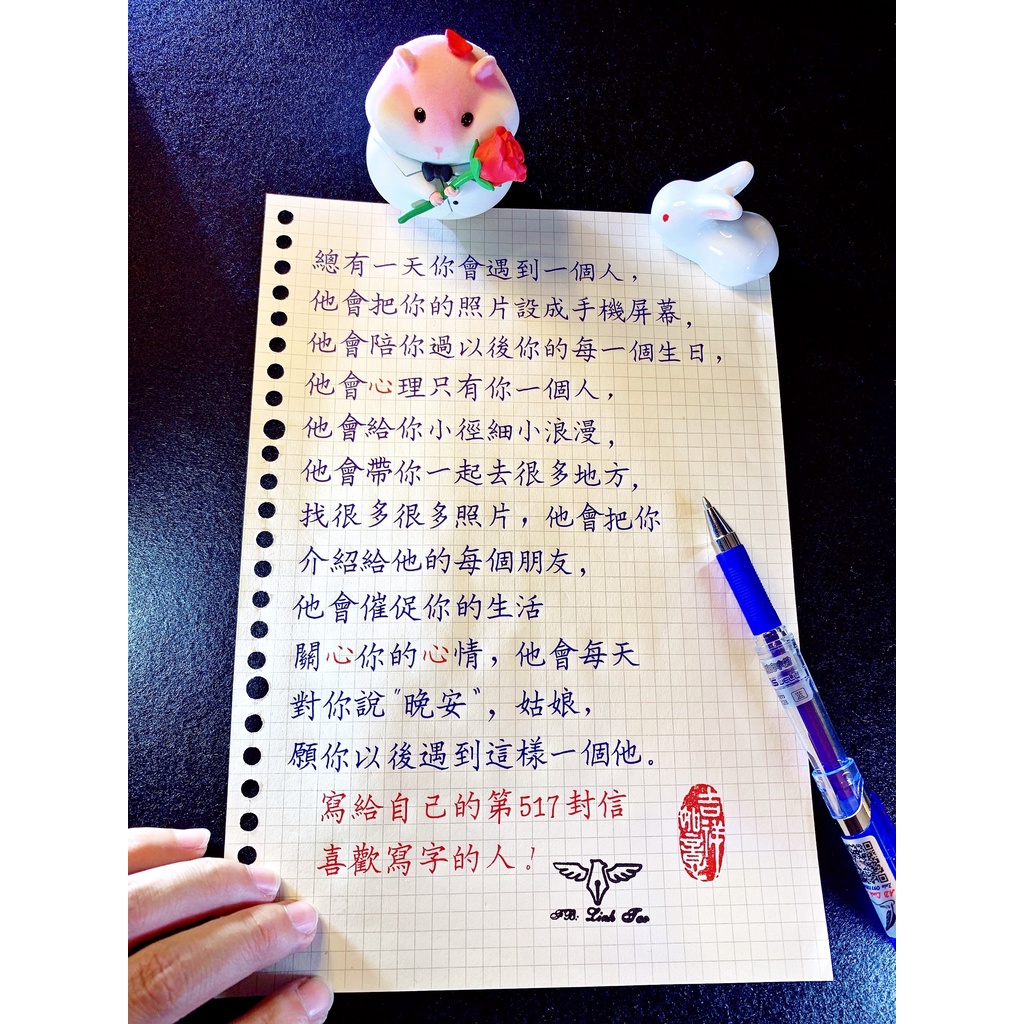 總有一天你會遇到一個人，
他會把你的照片設成手機屏幕，
他會陪你過以後你的每一個生日，
他會心理只有你一個人，
他會給你小徑細小浪漫，
他會帶你一起去很多地方，
找很多很多照片，他會把你
介紹給他的每個朋友，
他會催促你的生活
關心你的心情，他會每天
對你說"晚安"，姑娘，
願你以後遇到這樣一個他。
寫給自己的第517封信
喜歡寫字的人！
吉祥如意
FB: Linh Tao